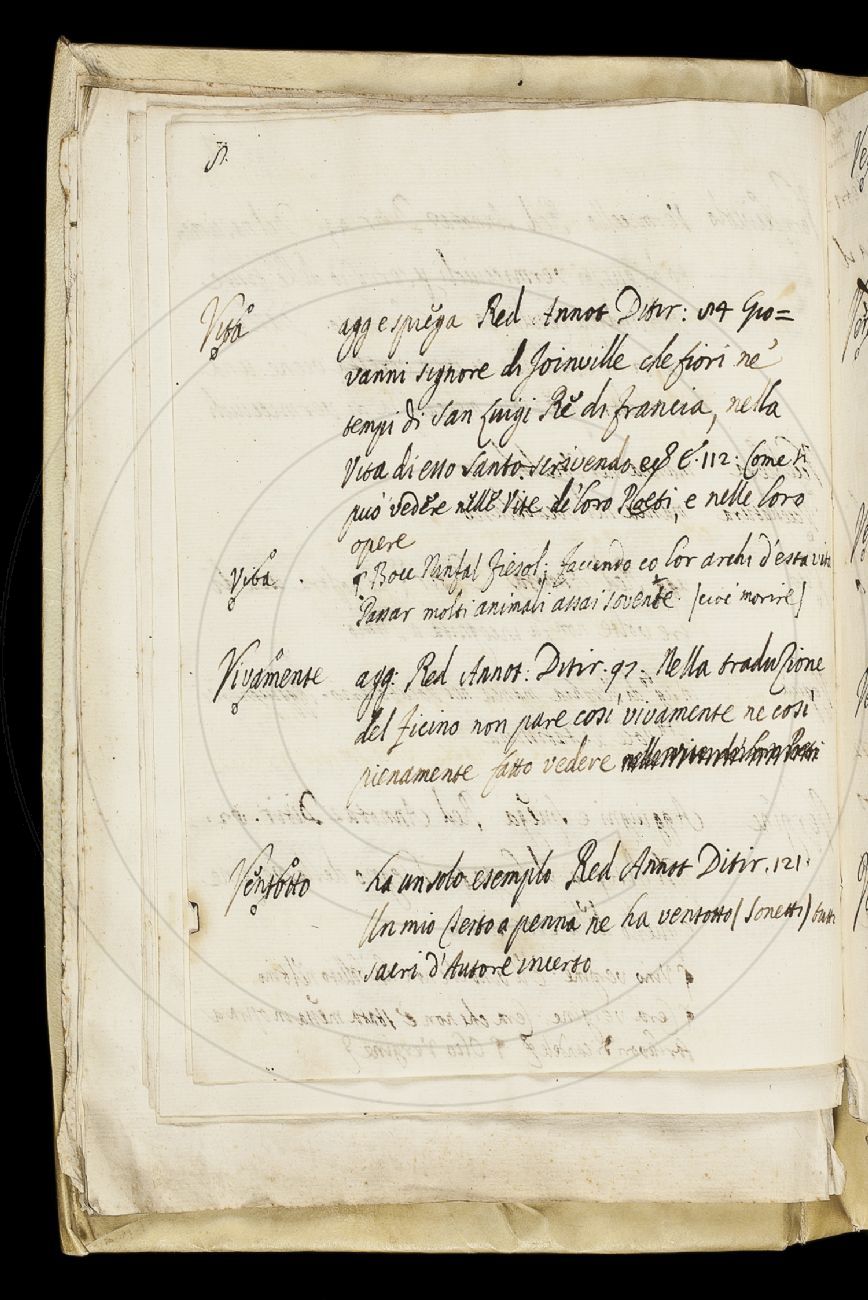 Vita agg e spiega Red Annot Ditir: Gio=
vanni signore di Joinville che fiorì ne'
tempi di San Luigi Rè di Francia, nella
Vita di esso Santo scrivendo 112. Come si
può vedere nelle Vite de' loro Poeti, e nelle loro
opere
Vita. Bocc Ninfal Fiesol: Facendo co lor archi d'esta vita
Passar molti animali assai sovente (cioè morire)
Vivamente agg: Red Annot: Ditir. 97. Nella traduzione
del Ficino non pare così vivamente ne così
pienamente fatto vedere
Ventotto ha un solo esemplo Red Annot Ditir. 121.
Un mio Testo a penna ne ha ventotto (Sonetti) tutti
sacri d'Autore incerto